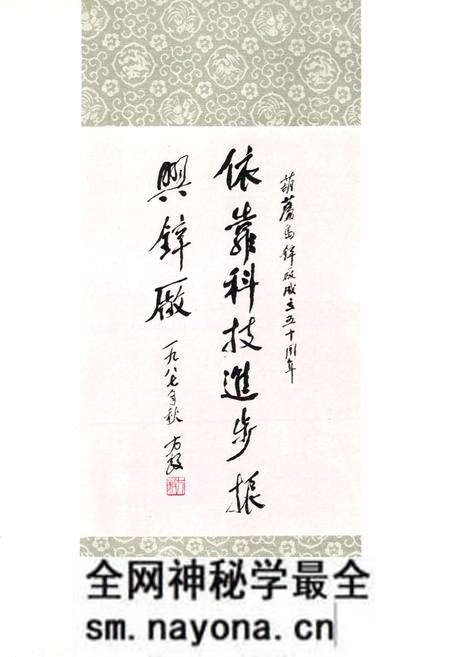 葫蘆岛鋅厰成立五十周年
依靠科技進步振
興鋅厰
一九八七年秋 方毅
全网神秘学最全
sm.nayona.cn